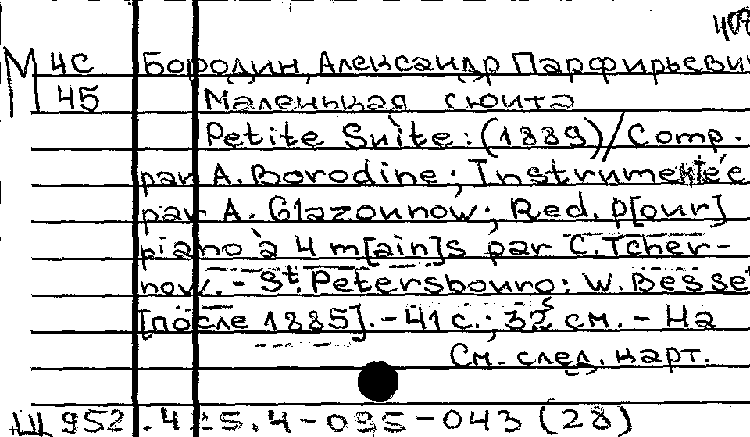 409
М 4С Бородин, Александр Парфирьевич
45 Маленькая сюита
Petite Suite: (1889)/Comp.
par A. Borodine; Instrumentée
par A. Glazounow; Red. p[our]
piano à 4 m[ain]s par C. Tcher-
now. - St. Petersbourg: W. Besse
[после 1885]. - 41 с.; 32 см. - На
См. след. карт.
Щ 952.415.4-095-043 (28)